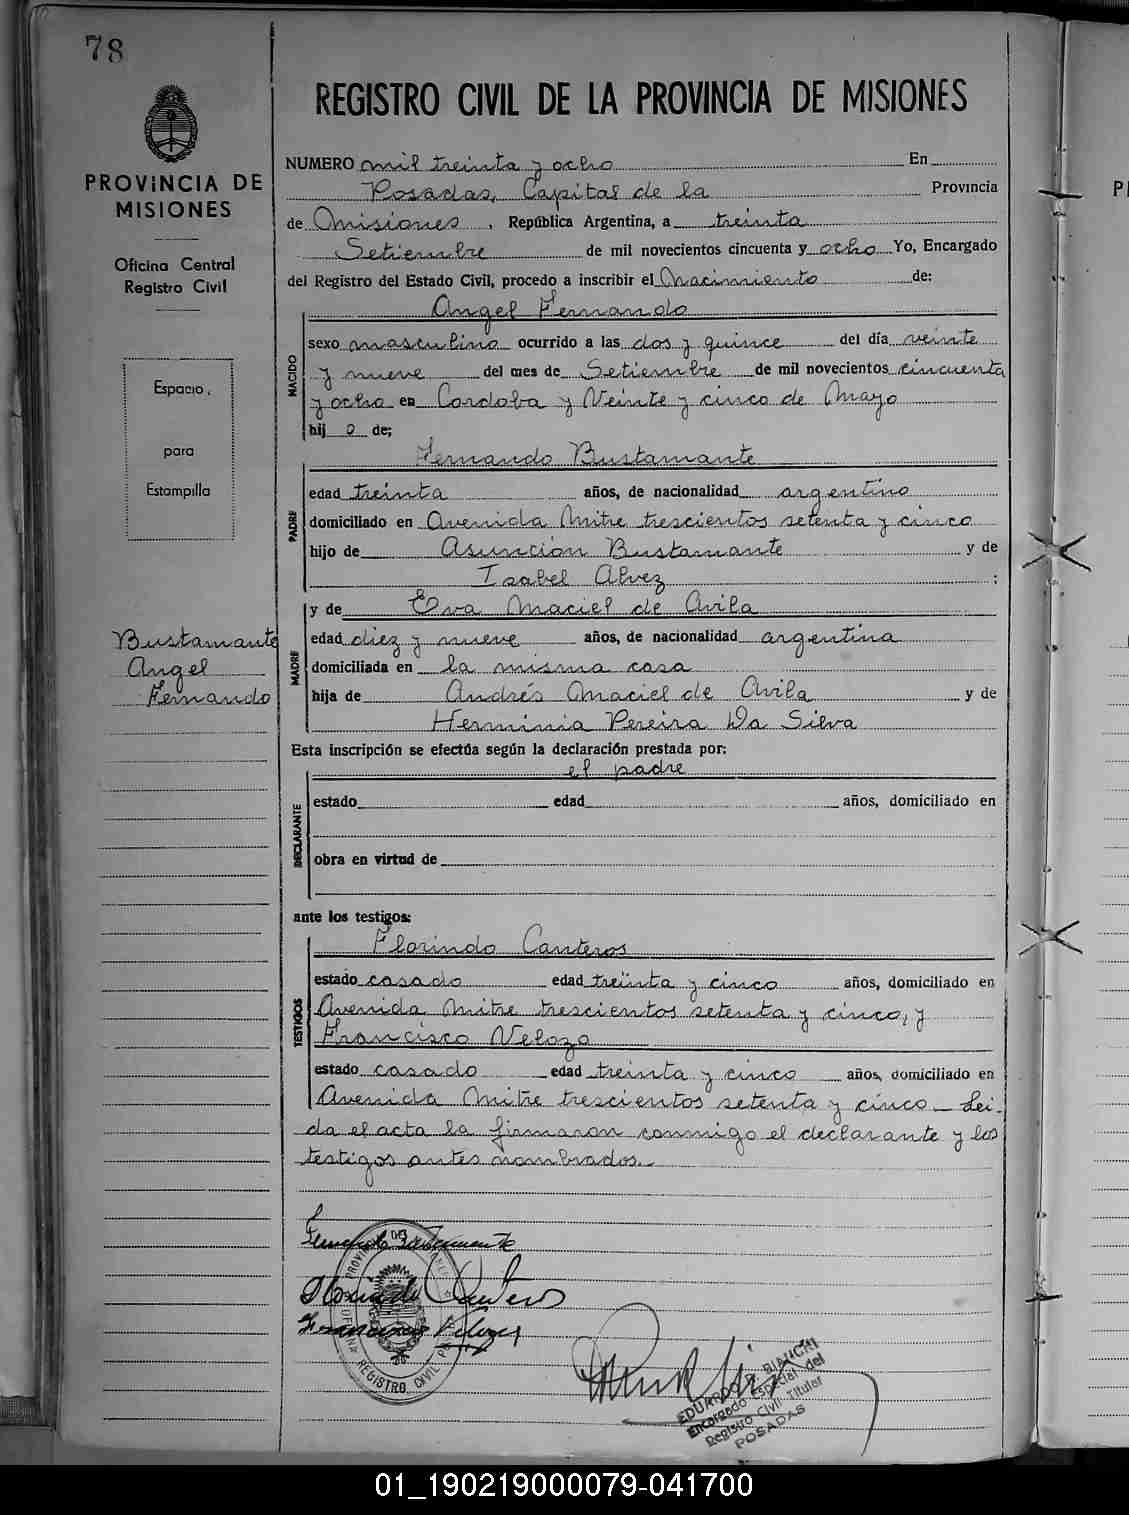 78
PROVINCIA DE
MISIONES
Oficina Central
Registro Civil
Espacio
para
Estampilla
Bustamante
Angel
Fernando
REGISTRO CIVIL DE LA PROVINCIA DE MISIONES
NUMERO mil treinta y ocho En
Posadas, Capital de la Provincia
de Misiones, República Argentina, a treinta
Setiembre de mil novecientos cincuenta y ocho Yo, Encargado
del Registro del Estado Civil, procedo a inscribir el Nacimiento de:
Angel Fernando
NACIDO
sexo masculino ocurrido a las dos y quince del día veinte
y nueve del mes de Setiembre de mil novecientos cincuenta
y ocho en Cordoba y Veinte y cinco de Mayo
hij o de;
Fernando Bustamante
PADRE
edad treinta años, de nacionalidad argentino
domiciliado en Avenida Mitre trescientos setenta y cinco
hijo de Asunción Bustamante y de
Isabel Alvez :
y de Eva Maciel de Avila
MADRE
edad diez y nueve años, de nacionalidad argentina
domiciliada en la misma casa
hija de Andrés Maciel de Avila y de
Herminia Pereira Da Silva
Esta inscripción se efectúa según la declaración prestada por:
el padre
DECLARANTE
estado edad años, domiciliado en
obra en virtud de
ante los testigos:
Florindo Canteros
TESTIGOS
estado casado edad treinta y cinco años, domiciliado en
Avenida Mitre trescientos setenta y cinco, y
Francisco Veloza
estado casado edad treinta y cinco años, domiciliado en
Avenida Mitre trescientos setenta y cinco - Lei-
da el acta la firmaron conmigo el declarante y los
testigos antes nombrados.-
Fernando Bustamante
Florindo Canteros
Francisco Veloza
OFICINA REGISTRO CIVIL
EDUARDO BIANCHI
Encargado Especial del
Registro Civil Titular
POSADAS
P
01_190219000079-041700